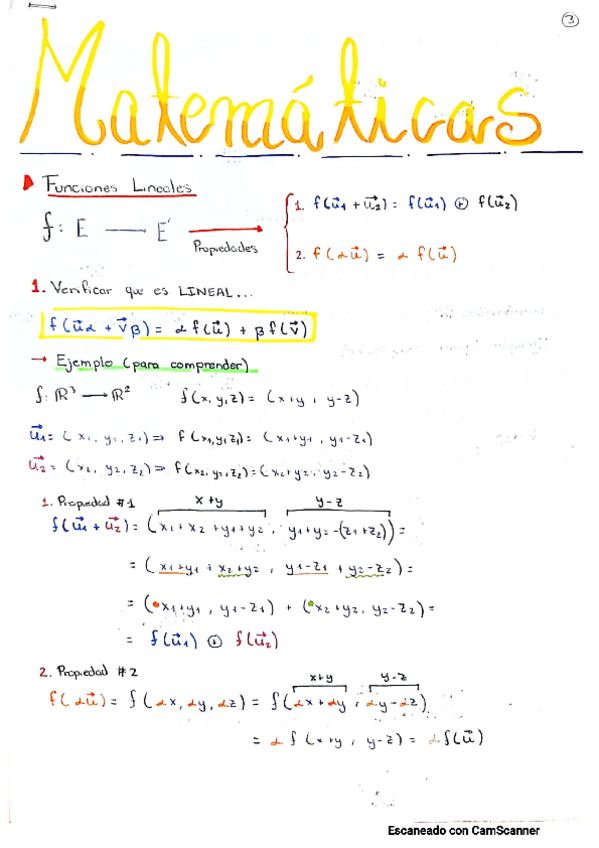 3
Matemáticas
Funciones Lineales
f: E — E' Propiedades
1. f(u⃗1 + u⃗2) = f(u⃗1) ⊕ f(u⃗2)
2. f(αu⃗) = α f(u⃗)
1. Verificar que es LINEAL...
f(u⃗α + v⃗β) = α f(u⃗) + β f(v⃗)
→ Ejemplo (para comprender)
f: ℝ³ → ℝ² f(x,y,z) = (x+y, y-z)
u⃗1 = (x1, y1, z1) ⇒ f(x1,y1,z1) = (x1+y1, y1-z1)
u⃗2 = (x2, y2, z2) ⇒ f(x2,y2,z2) = (x2+y2, y2-z2)
1. Propiedad #1 x+y y-z
f(u⃗1 + u⃗2) = (x1+x2+y1+y2, y1+y2-(z1+z2)) =
= (x1+y1 + x2+y2, y1-z1 + y2-z2) =
= (x1+y1, y1-z1) + (x2+y2, y2-z2) =
= f(u⃗1) ⊕ f(u⃗2)
2. Propiedad #2 x+y y-z
f(αu⃗) = f(αx, αy, αz) = f(αx+αy, αy-αz)
= α f(x+y, y-z) = α f(u⃗)
Escaneado con CamScanner